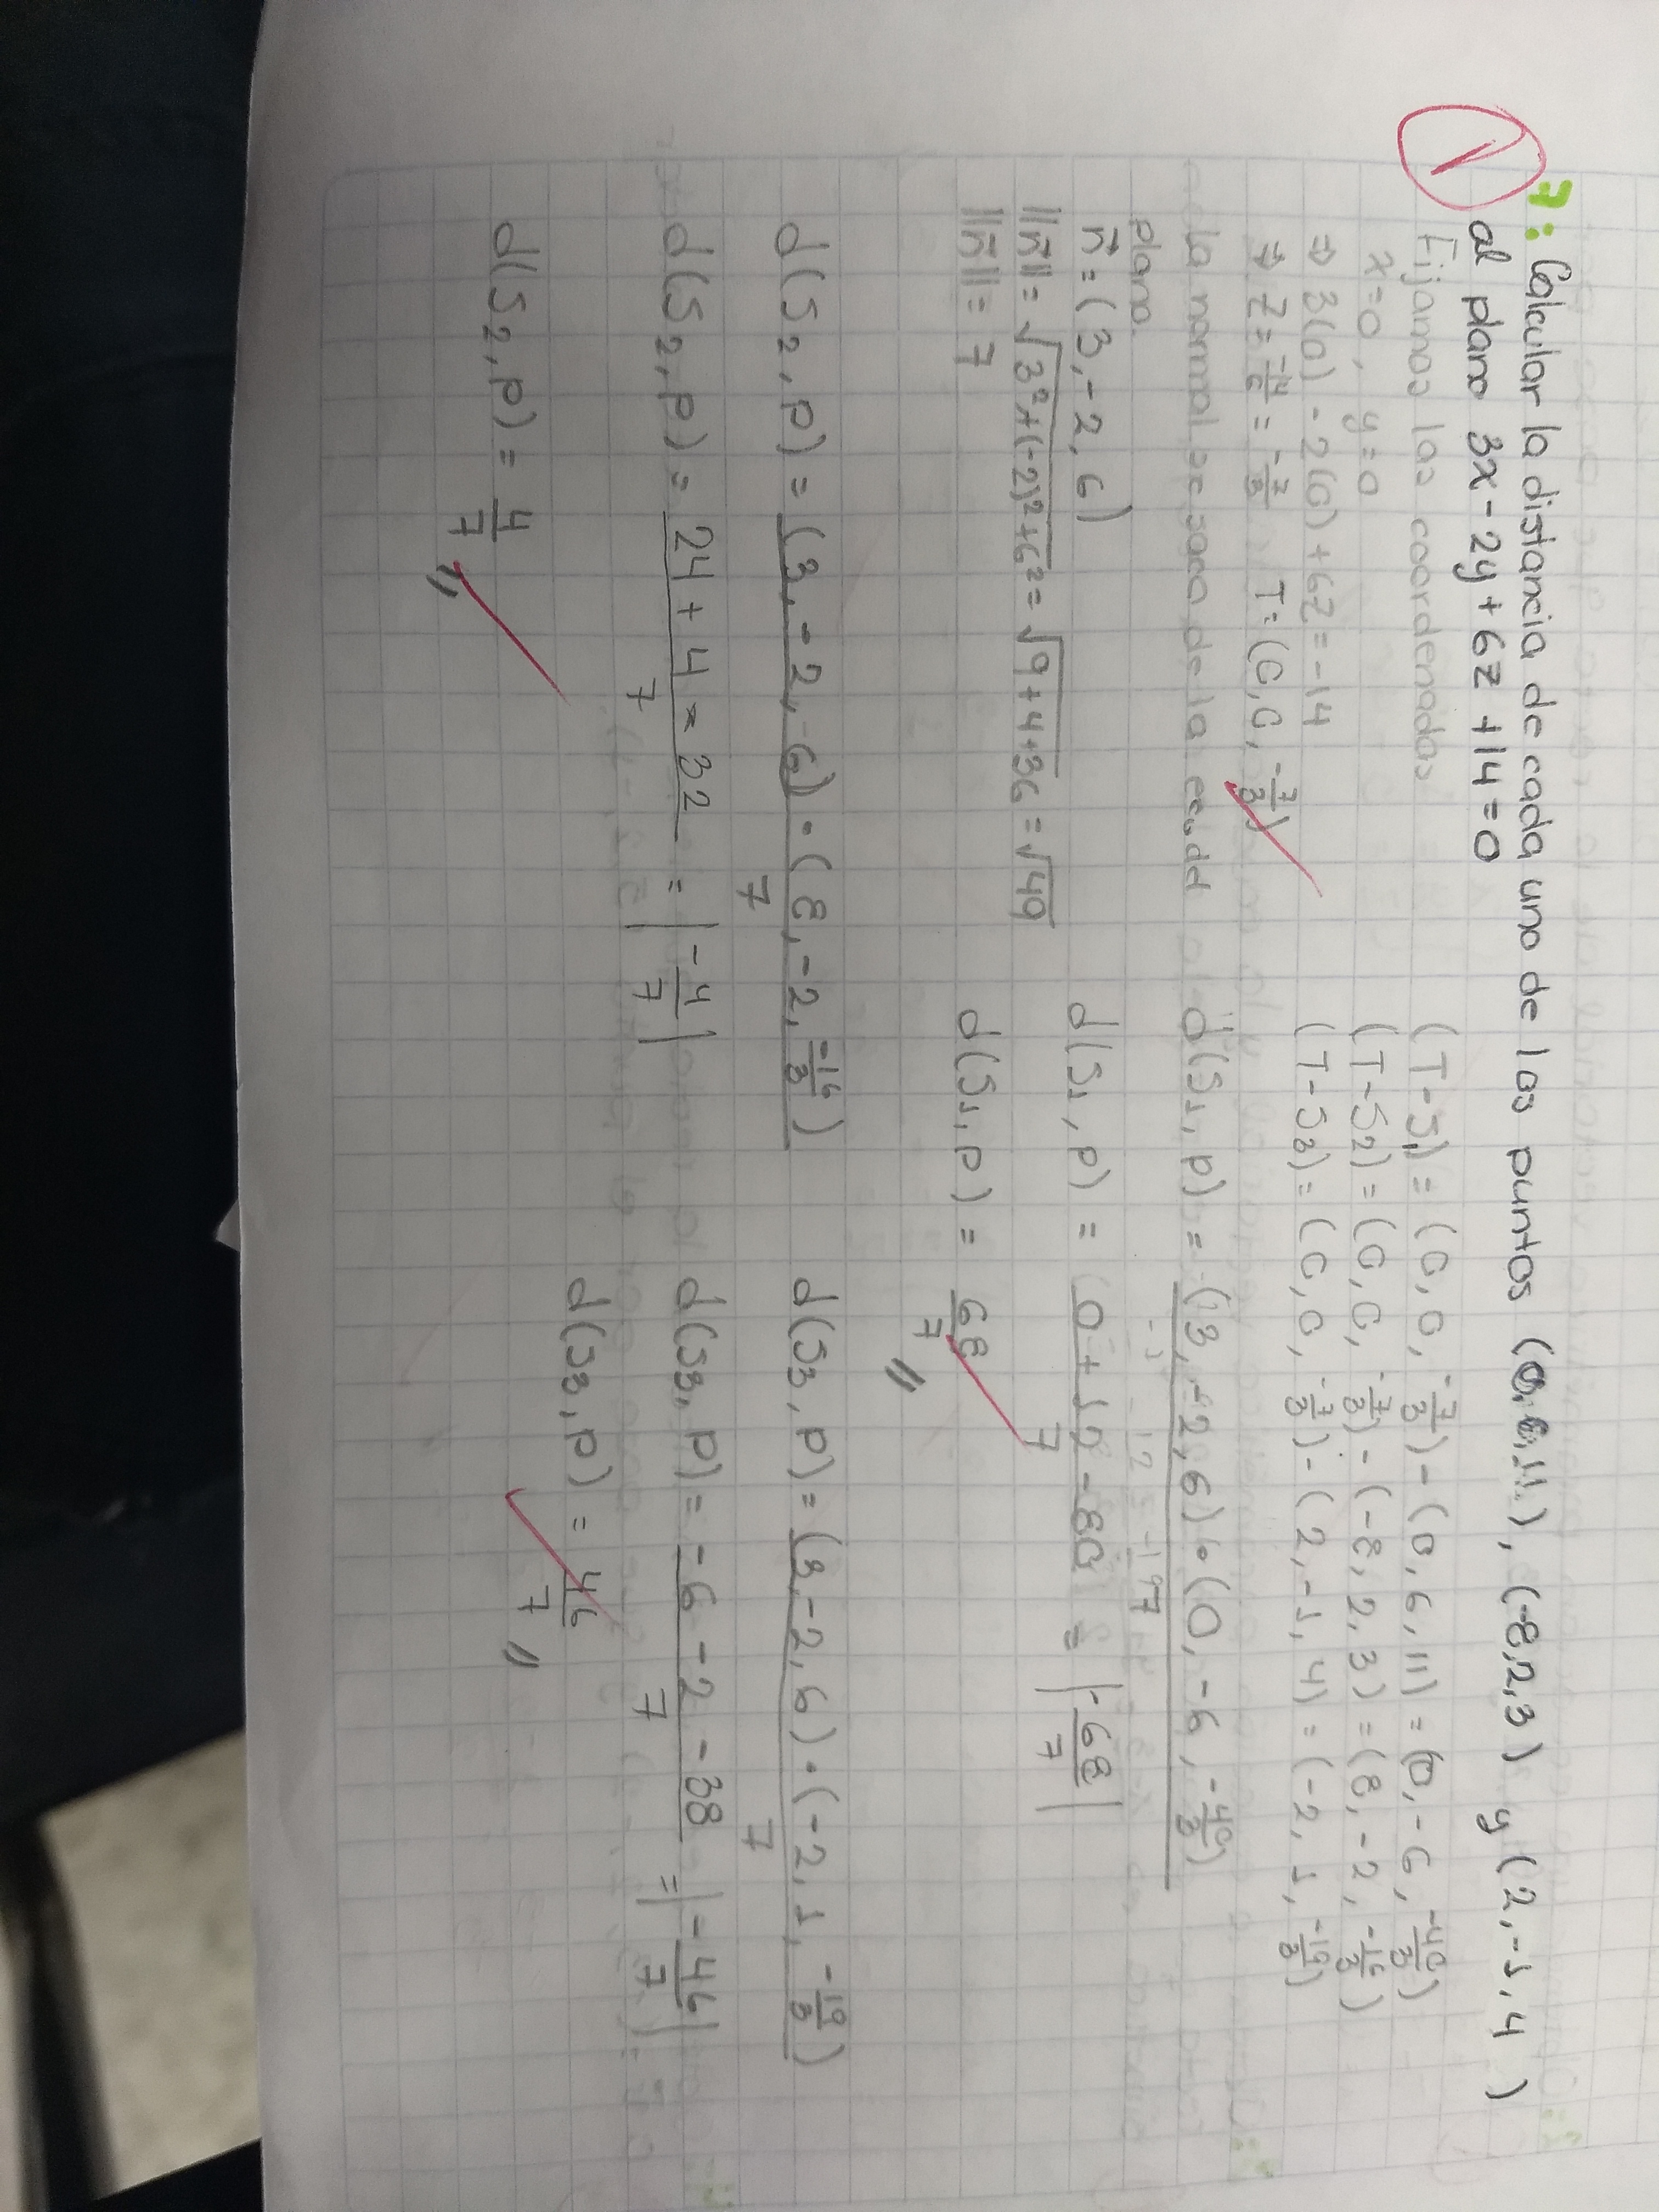 7: Calcular la distancia de cada uno de los puntos (0,6,11), (-8,2,3) y (2,-1,4)
al plano 3x-2y+6z+14=0
1
Fijamos las coordenadas
x=0, y=0
⇒ 3(0)-2(0)+6z=-14
⇒ z=-14/6=-7/3 T=(0,0,-7/3)
La normal se saca de la ecu. del
plano.
n⃗=(3,-2,6)
||n⃗||=√3²+(-2)²+6²=√9+4+36=√49
||n⃗||=7
(T-S1)=(0,0,-7/3)-(0,6,11)=(0,-6,-40/3)
(T-S2)=(0,0,-7/3)-(-8,2,3)=(8,-2,-16/3)
(T-S3)=(0,0,-7/3)-(2,-1,4)=(-2,1,-19/3)
d(S1,P)=(3,-2,6)•(0,-6,-40/3)/7
d(S1,P)=0+12-80/7=|-68/7|
d(S1,P)=68/7 //
d(S2,P)=(3,-2,6)•(8,-2,-16/3)/7
d(S2,P)=24+4-32/7=|-4/7|
d(S2,P)=4/7 //
d(S3,P)=(3,-2,6)•(-2,1,-19/3)/7
d(S3,P)=-6-2-38/7=|-46/7|
d(S3,P)=46/7 //